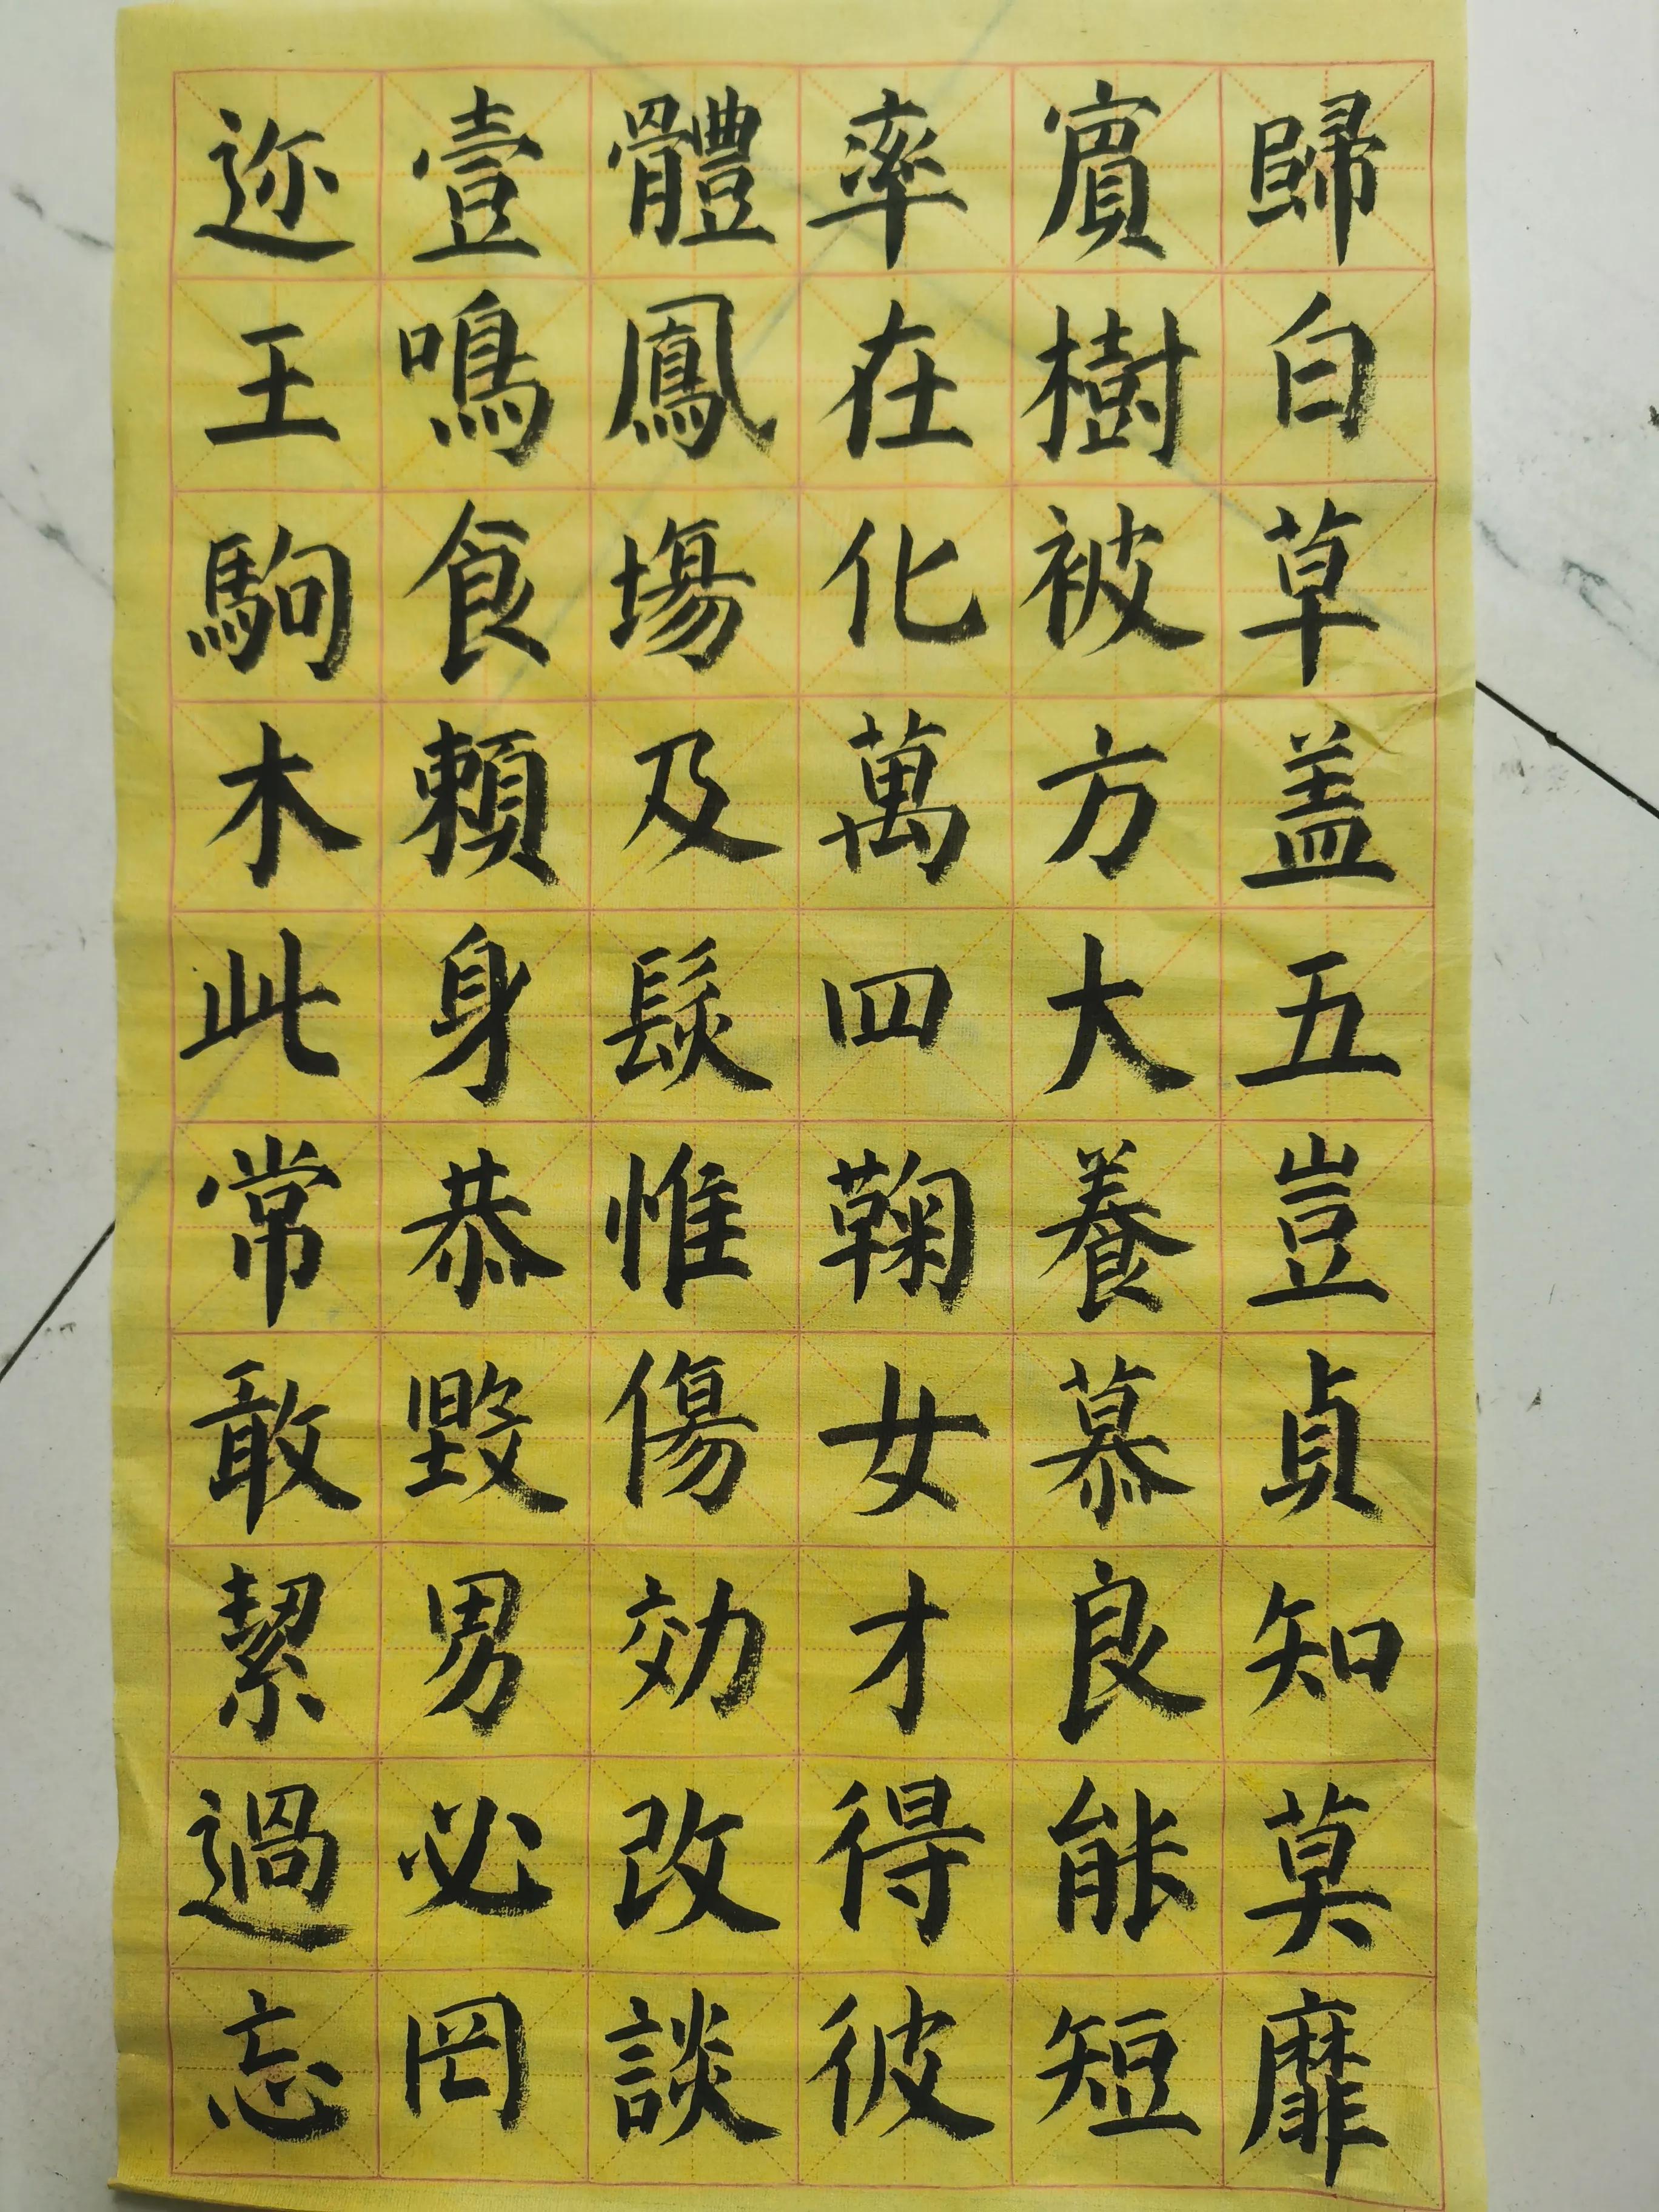 迩壹體率賔歸
王鳴鳳在樹白
駒食塲化被草
木賴及萬方盖
此身髮四大五
常恭惟鞠養豈
敢毀傷女慕貞
絜男効才良知
過必改得能莫
忘罔談彼短靡